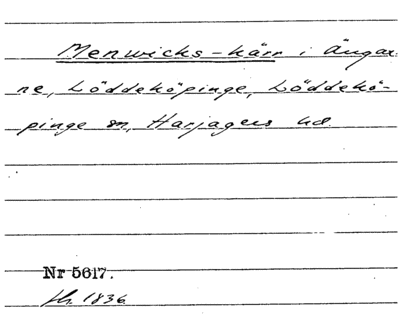 Menwicks-kärr i Ängar-
ne, Löddeköpinge, Löddekö-
pinge sn, Harjagers hd.
Nr 5617.
1836